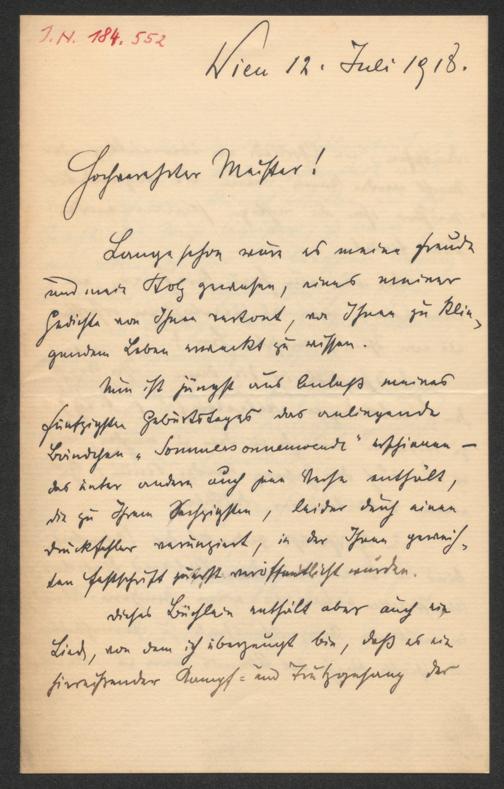 I.N. 184.552
Wien 12. Juli 1918.
Hochverehrter Meister!
Lange schon wäre es meine Freude
und mein Stolz gewesen, eines meiner
Gedichte von Ihnen vertont, von Ihnen zu klin-
gendem Leben erweckt zu wissen.
Nun ist jüngst aus Anlaß meines
fünfzigsten Geburtstages das anliegende
Bändchen „Sommersonnenwende" erschienen –
das unter andern auch jene Verse enthält,
die zu Ihrem Sechzigsten, leider durch einen
Druckfehler verunziert, in der Ihnen geweih-
ten Festschrift zuerst veröffentlicht wurden.
Dieses Büchlein enthält aber auch ein
Lied, von dem ich überzeugt bin, daß es ein
hinreißender Kampf- und Trutzgesang der